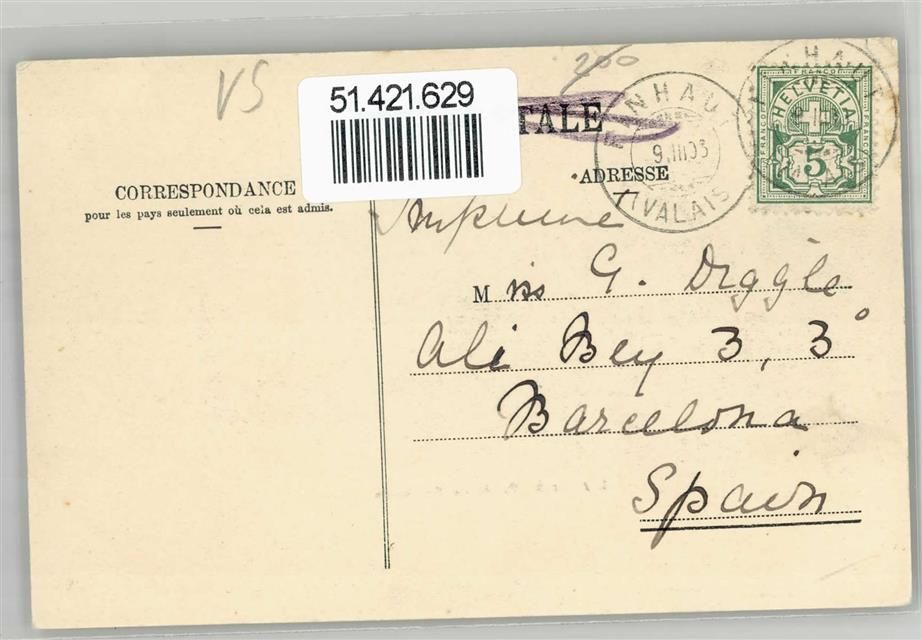 VS
200
51.421.629
TALE
ADRESSE
CORRESPONDANCE
pour les pays seulement où cela est admis.
FINHAUT
9.III.03
(VALAIS)
FINHAUT
FRANCO
HELVETIA
FRANCO
FRANCO
5
Imprimé
Miss G. Diggle
Ali Bey 3, 3°
Barcelona
Spain